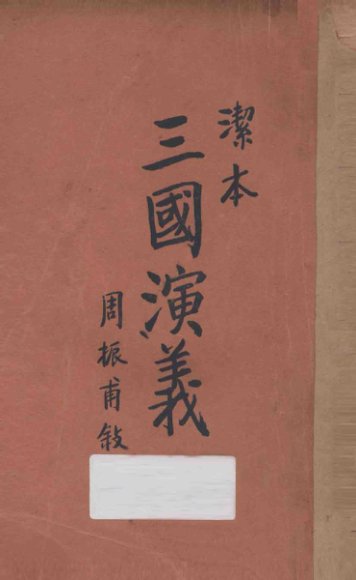 潔本
三國演義
周振甫敍